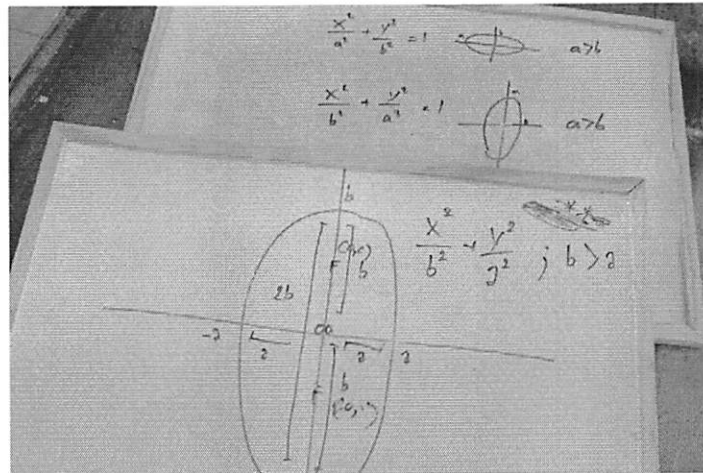 x²/a² + y²/b² = 1 a>b
x²/b² + y²/a² = 1 a>b
b
x²/b² + y²/a² ; b>a
F b
2b
-a a a a
b
F